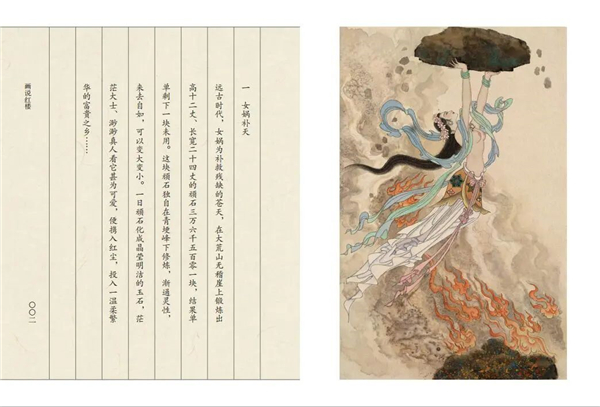 一 女娲补天
远古时代，女娲为补救残缺的苍天，在大荒山无稽崖上锻炼出
高十二丈、长宽二十四丈的顽石三万六千五百零一块，结果单
单剩下一块未用。这块顽石独自在青埂峰下修炼，渐通灵性，
来去自如，可以变大变小。一日顽石化成晶莹明洁的玉石，茫
茫大士、渺渺真人看它甚为可爱，便携入红尘，投入一温柔繁
华的富贵之乡……
画说红楼
〇〇二